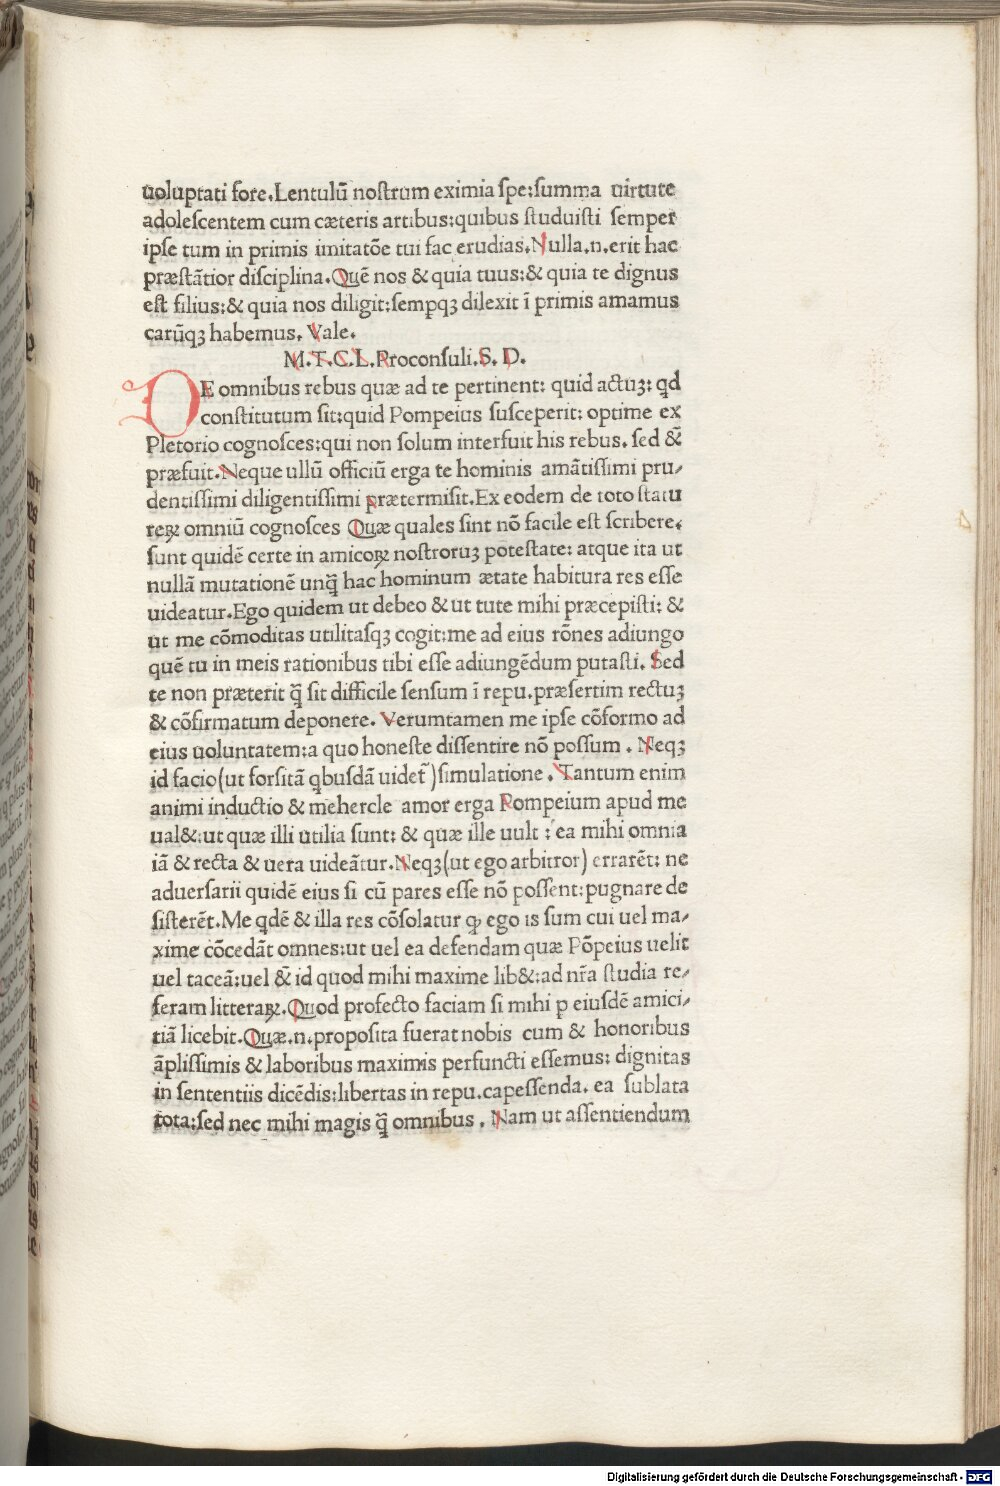 uoluptati fore.Lentulū nostrum eximia spe:summa uirtute
adolescentem cum cæteris artibus:quibus studuisti semper
ipse tum in primis imitatōe tui fac erudias.Nulla.n.erit hac
præstātior disciplina.Quē nos & quia tuus:& quia te dignus
est filius:& quia nos diligit:sempqꝫ dilexit ī primis amamus
carūqꝫ habemus. Vale.
M.T.C.L.Proconsuli.S.D.
DE omnibus rebus quæ ad te pertinent: quid actuꝫ: qd
constitutum sit:quid Pompeius susceperit: optime ex
Pletorio cognosces:qui non solum interfuit his rebus. sed &
præfuit.Neque ullū officiū erga te hominis amātissimi pru-
dentissimi diligentissimi prætermisit.Ex eodem de toto statu
reꝝ omniū cognosces Quæ quales sint nō facile est scribere.
sunt quidē certe in amicoꝝ nostroruꝫ potestate: atque ita ut
nullā mutationē unq̄ hac hominum ætate habitura res esse
uideatur.Ego quidem ut debeo & ut tute mihi præcepisti: &
ut me cōmoditas utilitasqꝫ cogit:me ad eius rōnes adiungo
quē tu in meis rationibus tibi esse adiungēdum putasti. Sed
te non præterit q̄ sit difficile sensum ī repu.præsertim rectuꝫ
& cōfirmatum deponere. Verumtamen me ipse cōformo ad
eius uoluntatem:a quo honeste dissentire nō possum . Neqꝫ
id facio(ut forsitā qbusdā uidet̄)simulatione . Tantum enim
animi inductio & mehercle amor erga Pompeium apud me
ual&:ut quæ illi utilia sunt: & quæ ille uult : ea mihi omnia
iā & recta & uera uideātur.Neqꝫ(ut ego arbitror) errarēt: ne
aduersarii quidē eius si cū pares esse nō possent:pugnare de
sisterēt.Me qdē & illa res cōsolatur ꝙ ego is sum cui uel ma-
xime cōcedāt omnes:ut uel ea defendam quæ Pōpeius uelit
uel taceā:uel & id quod mihi maxime lib&:ad nr̄a studia re-
feram litteraꝝ.Quod profecto faciam si mihi p eiusdē amici-
tiā licebit.Quæ.n.proposita fuerat nobis cum & honoribus
āplissimis & laboribus maximis perfuncti essemus: dignitas
in sententiis dicēdis:libertas in repu.capessenda. ea sublata
tota:sed nec mihi magis q̄ omnibus . Nam ut assentiendum
Digitalisierung gefördert durch die Deutsche Forschungsgemeinschaft - DFG